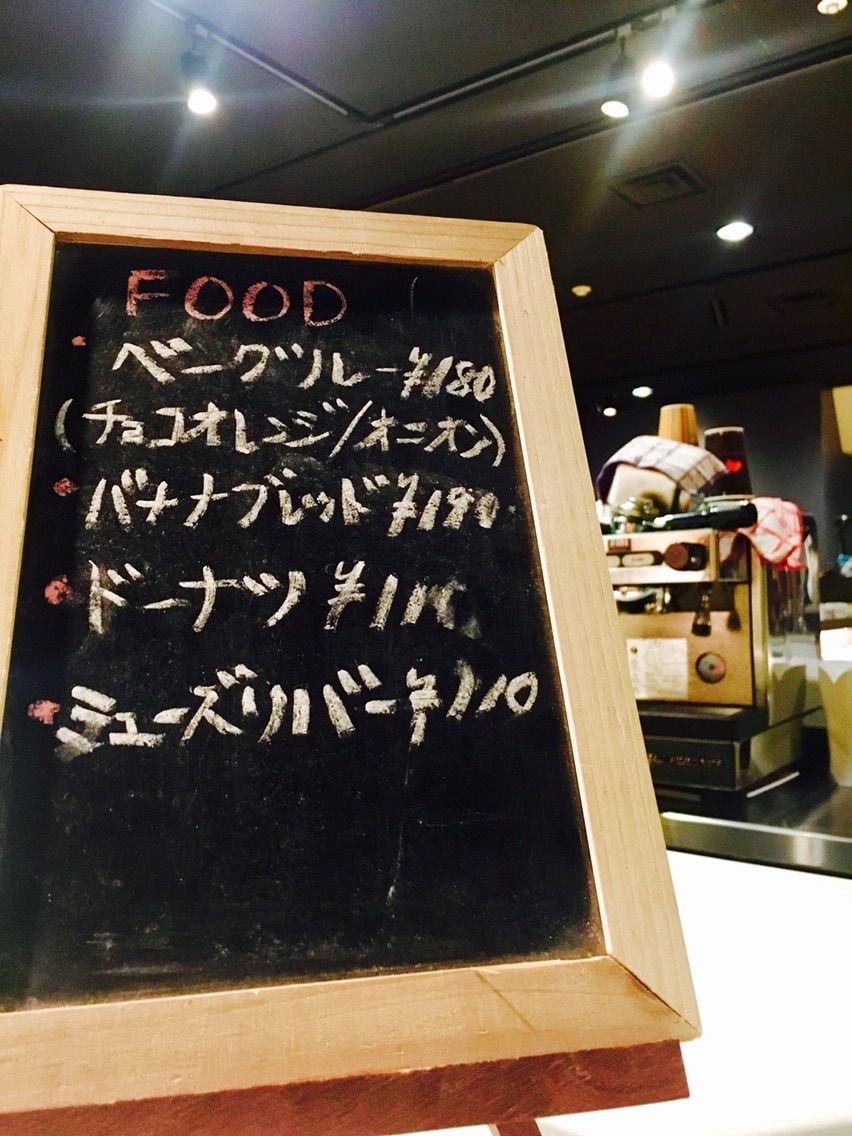 FOOD
・ベーグツレー¥180
(チョコオレンジ/オニオン)
・バナナブレッド¥190
・ドーナツ ¥110
・ミューズリバー¥210